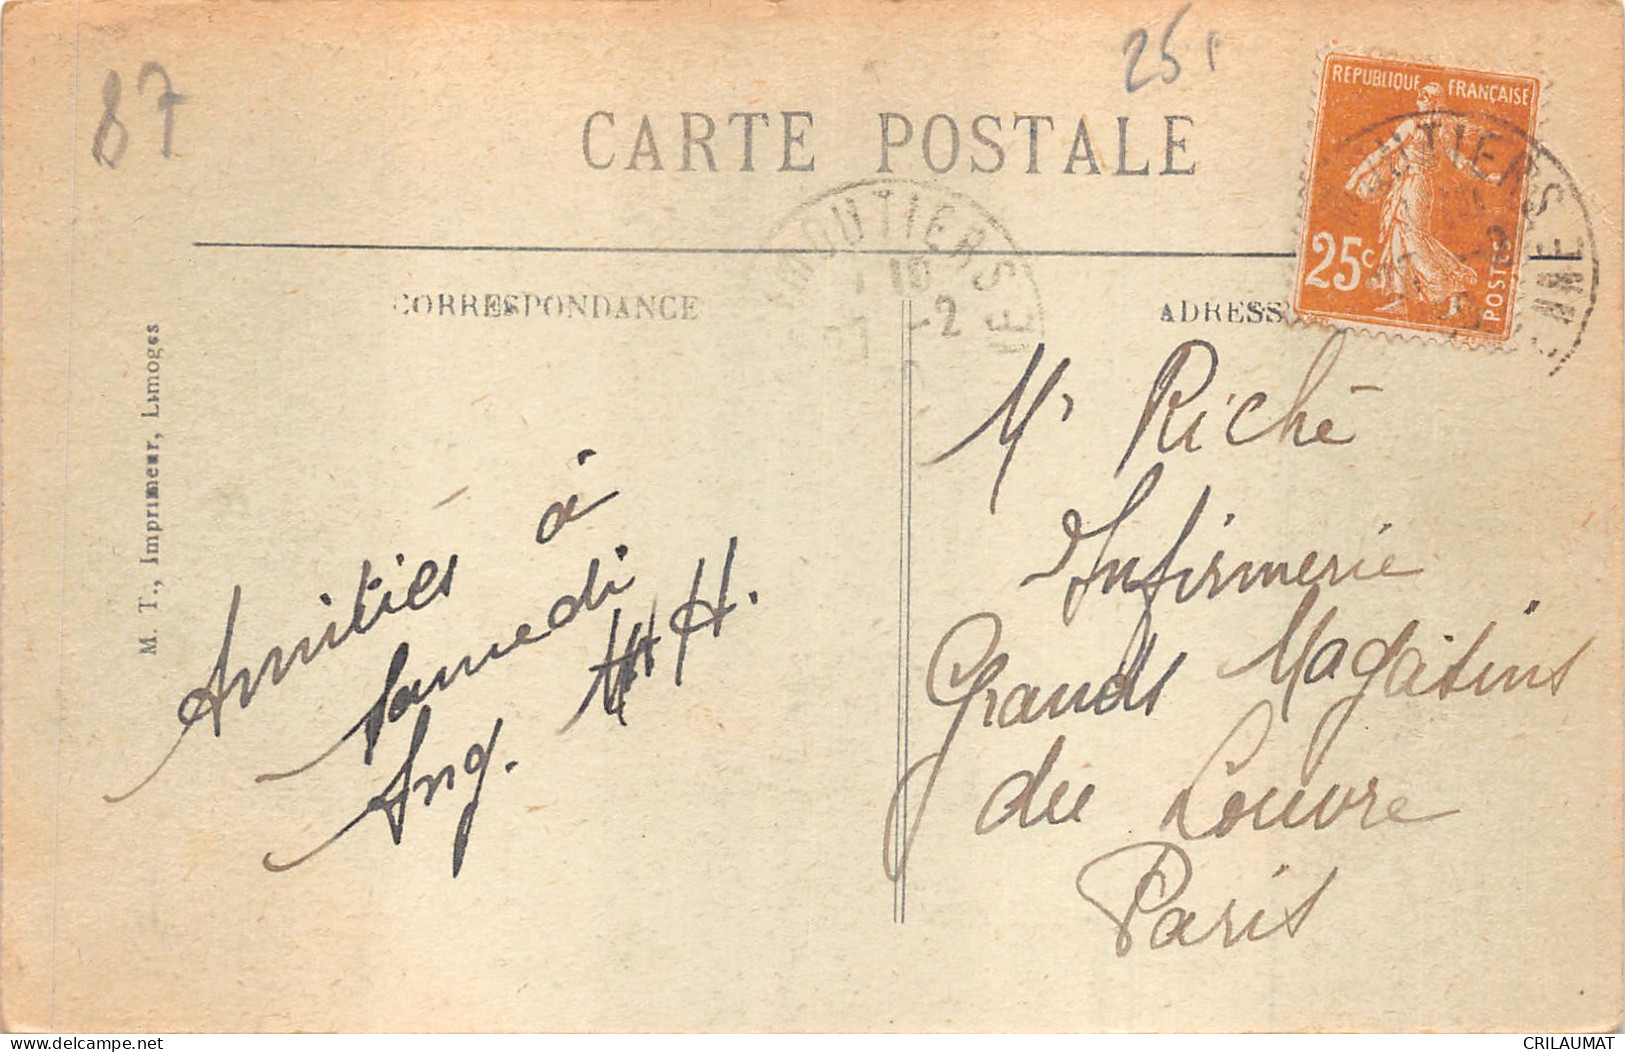 87
25
CARTE POSTALE
REPUBLIQUE FRANÇAISE
25c
POSTES
MOUTIERS
-2
CORRESPONDANCE
ADRESS
M. T., Imprimeur, Limoges
Amitiés à
samedi
Ang. H.
Mr Riché
Infirmerie
Grands Magasins
du Louvre
Paris
delcampe.net
CRILAUMAT